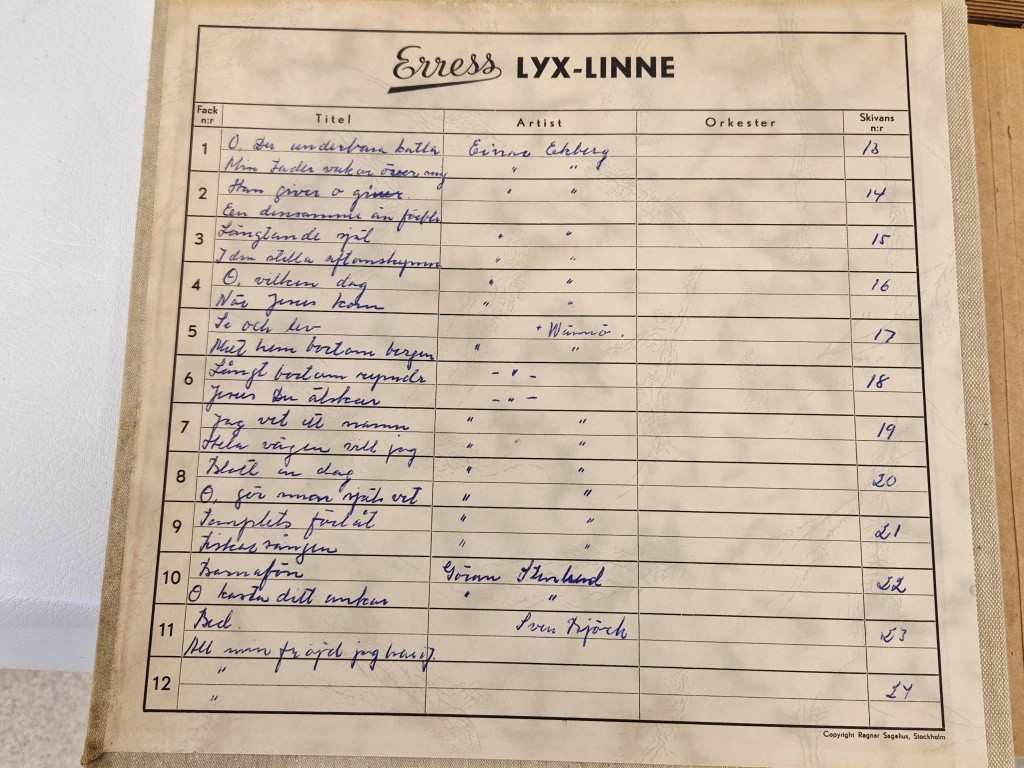 Erress LYX-LINNE
Fack n:r Titel Artist Orkester Skivans n:r
1 O, Du underbara källa Einar Ekberg 13
Min Fader vakar över mig " "
2 Han giver o giver " " 14
Een densamme än
3 Längtande själ " " 15
I den stilla aftonskymn " "
4 O, vilken dag " " 16
När Jesus kom " "
5 Se och lev + Wärnö. 17
Mitt hem bortom bergen " "
6 Långt bortom rymder - " - 18
Jesus Du älskar - " -
7 Jag vet ett namn " " 19
Hela vägen vill jag " "
8 Blott en dag " " 20
O, gör min själ vit " "
9 Templets förlåt " " 21
Fiskarsången " "
10 Barnatron Göran Stenlund 22
O kasta ditt ankar " "
11 Bed. Sven Björk 23
All min fröjd jag har
"
12 24
"
Copyright Ragnar Sagelius, Stockholm